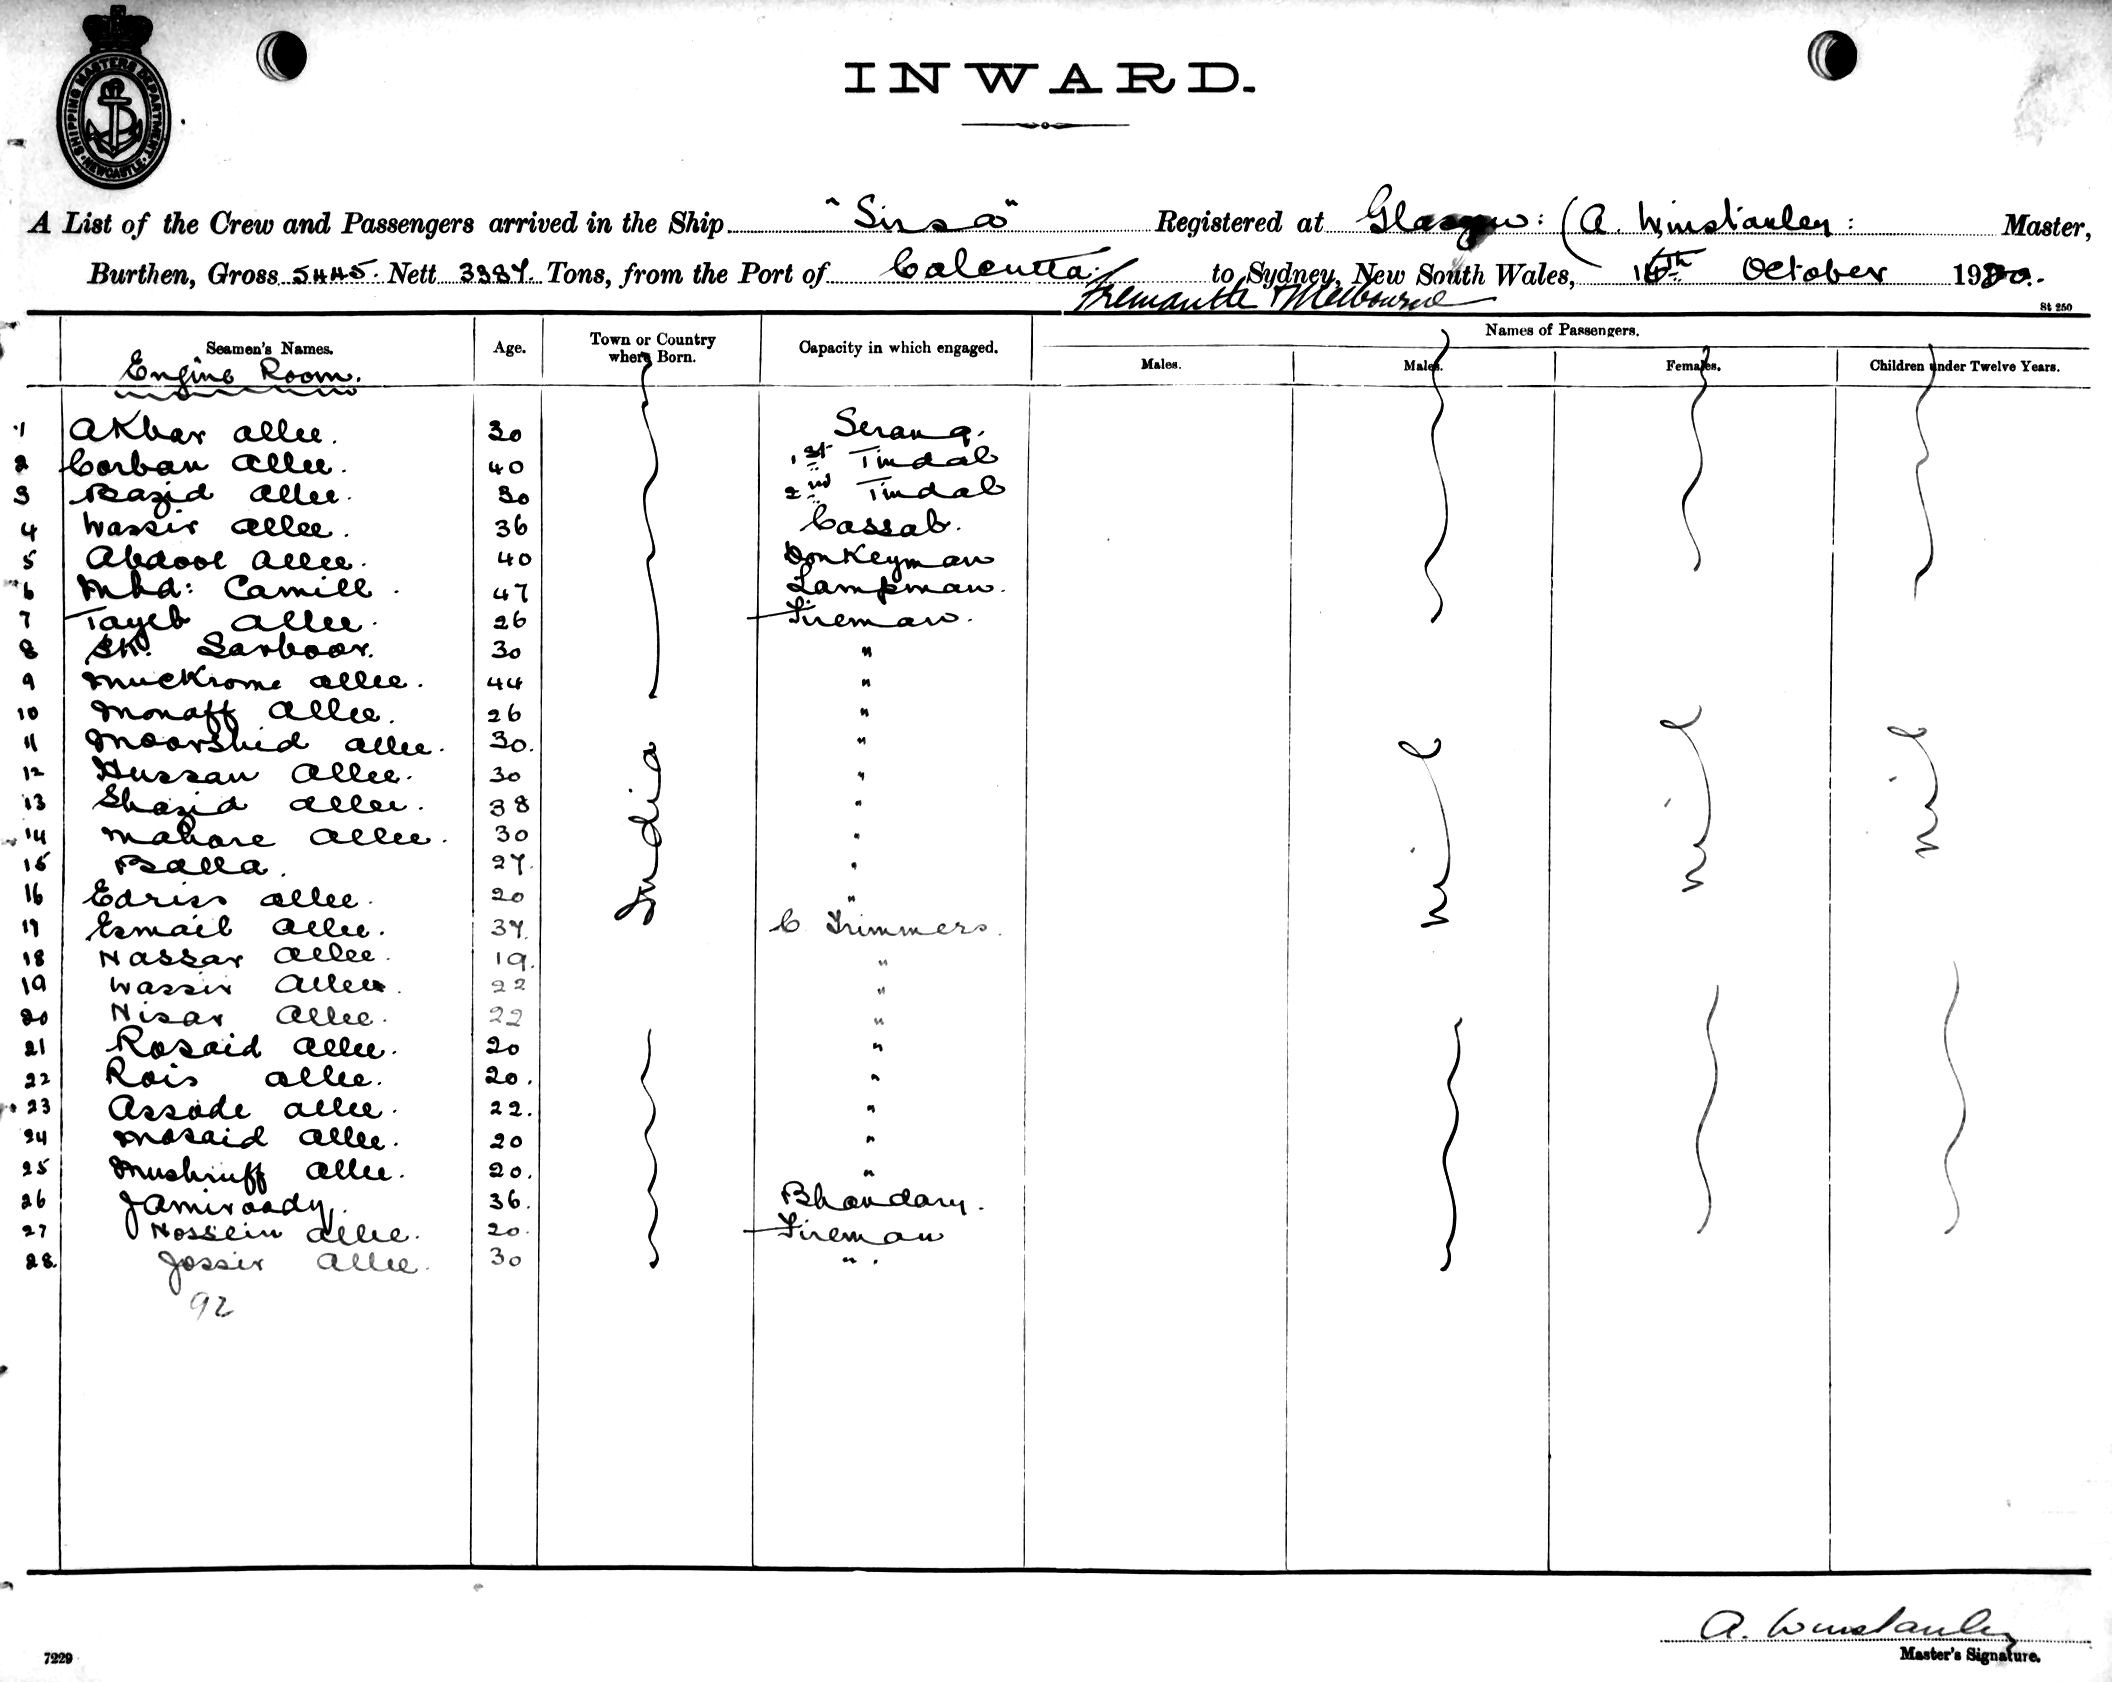 SHIPPING MASTERS DEPARTMENT · NEWCASTLE ·
INWARD.
A List of the Crew and Passengers arrived in the Ship "Sirsa" Registered at Glasgow: (A. Winstanley: Master,
Burthen, Gross 5445. Nett 3387. Tons, from the Port of Calcutta. to Sydney, New South Wales, October 1920.
Fremantle & Melbourne
St 250
Seamen's Names. Age. Town or Country where Born. Capacity in which engaged. Names of Passengers.
Males. Males. Females. Children under Twelve Years.
Engine Room.
1 Akbar Allee. 30 Serang.
2 Corban Allee. 40 1st Tindal
3 Bazid Allee. 30 2nd Tindal
4 Wassir Allee. 36 Cassab.
5 Abdool Allee. 40 Donkeyman
6 Mhd: Camill. 47 Lampman.
7 Tayeb Allee. 26 Fireman.
8 SK. Sarboor. 30 "
9 Muckrome Allee. 44 "
10 Monaff Allee. 26 "
11 Moorshid Allee. 30. "
12 Hussan Allee. 30 "
13 Shazid Allee. 38 "
14 Mahare Allee. 30 "
15 Balla. 27. "
16 Edriss Allee. 20 "
17 Esmail Allee. 37. C Trimmers.
18 Nassar Allee. 19. "
19 Wassir Allee. 22 "
20 Nisar Allee. 22 "
21 Rosaid Allee. 20 "
22 Rois Allee. 20. "
23 Assode Allee. 22. "
24 Mosaid Allee. 20 "
25 Mushruff Allee. 20. "
26 Jamiroody. 36. Bhandary.
27 Hossein Allee. 20. Fireman
28. Jossir Allee. 30 ".
India
Nil
Nil
Nil
92
A. Winstanley
Master's Signature.
7229